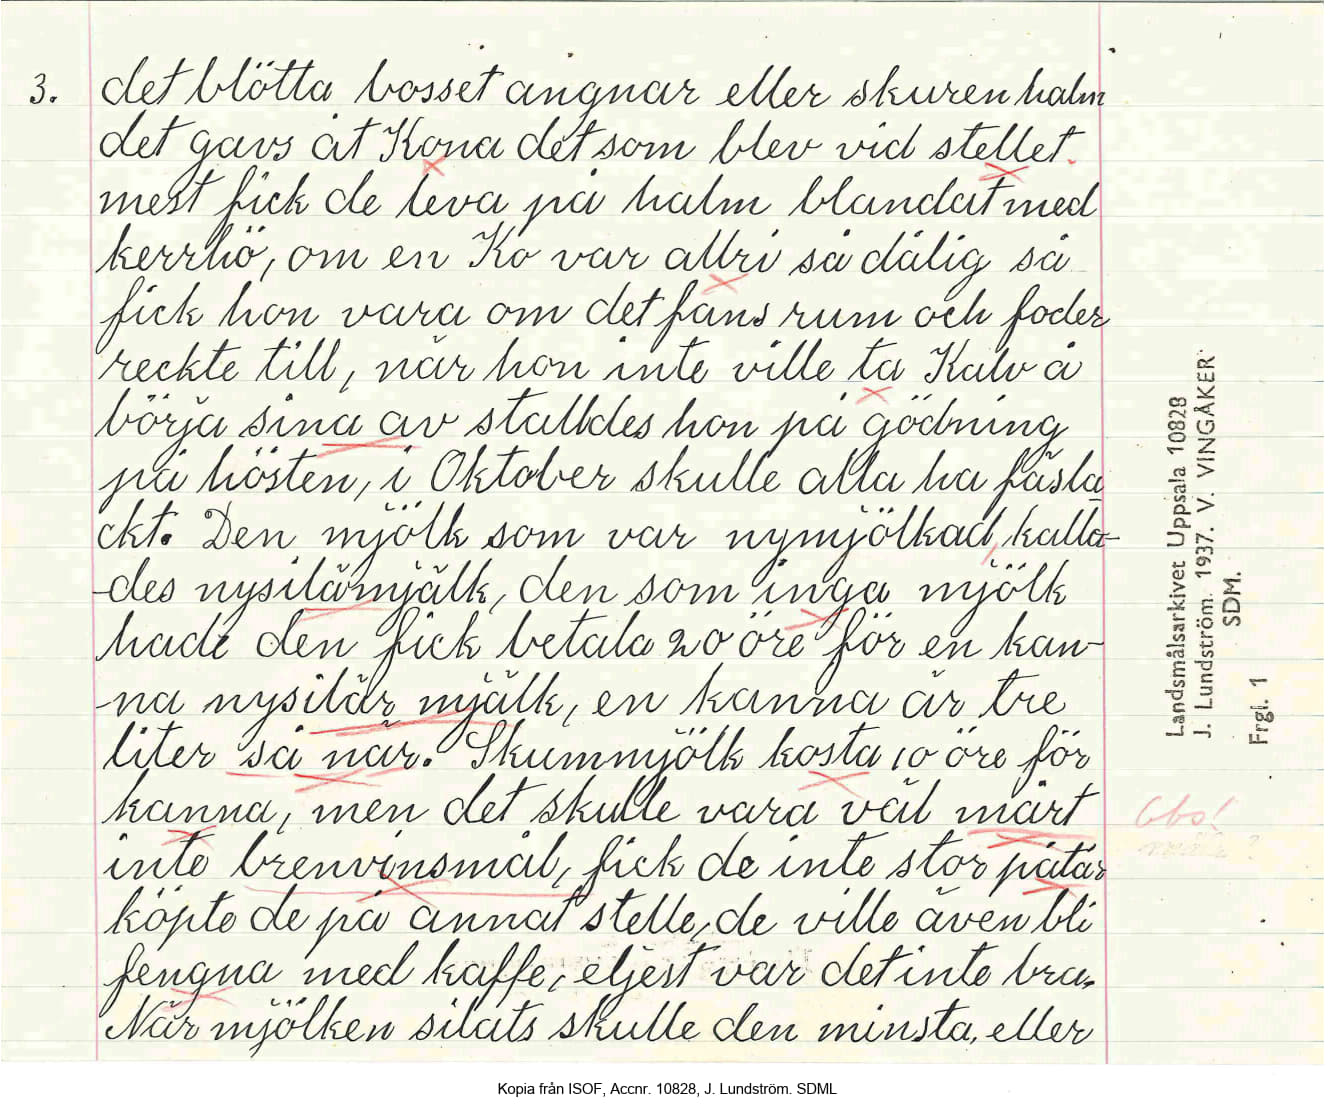 3. det blötta bosset angnar eller skuren halm
det gavs åt Kona det som blev vid stellet
mest fick de leva på halm blandat med
kerrhö, om en Ko var allri så dålig så
fick hon vara om det fans rum och foder
reckte till, när hon inte ville ta Kalv å
börja sina av stalldes hon på gödning
på hösten, i Oktober skulle alla ha fäsla
ckt. Den mjölk som var nymjölkad, kalla-
-des nysilämjälk, den som inga mjölk
hade den fick betala 20 öre för en kan-
-na nysilär mjälk, en kanna är tre
liter så när. Skummjölk kosta 10 öre för
kanna, men det skulle vara väl mårt
inte brenvinsmål, fick de inte stor påtår
köpte de på annat stelle, de ville även bli
fengna med kaffe, eljest var det inte bra.
När mjölken silats skulle den minsta, eller
Landsmålsarkivet Uppsala 10828
J. Lundström. 1937. V. VINGÅKER
SDM.
Frgl. 1
Obs!
Kopia från ISOF, Accnr. 10828, J. Lundström. SDML